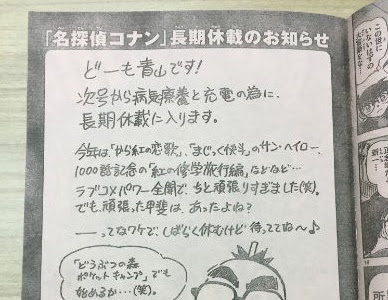 「名探偵コナン」長期休載のお知らせ
どーも青山です!
次号から病気療養と充電の為に、
長期休載に入ります。
今年は、「から紅の恋歌」、「まじっく快斗」のサン・ヘイロー、
1000話記念の「紅の修学旅行編」などなど…
ラブコメパワー全開で、ちと頑張りすぎました(笑)。
でも、頑張った甲斐は、あったよね?
——ってなワケで、しばらく休むけど待っててね〜♪
「どうぶつの森
ポケットキャンプ」でも
始めるか…(笑)。
この世に
いないはずの